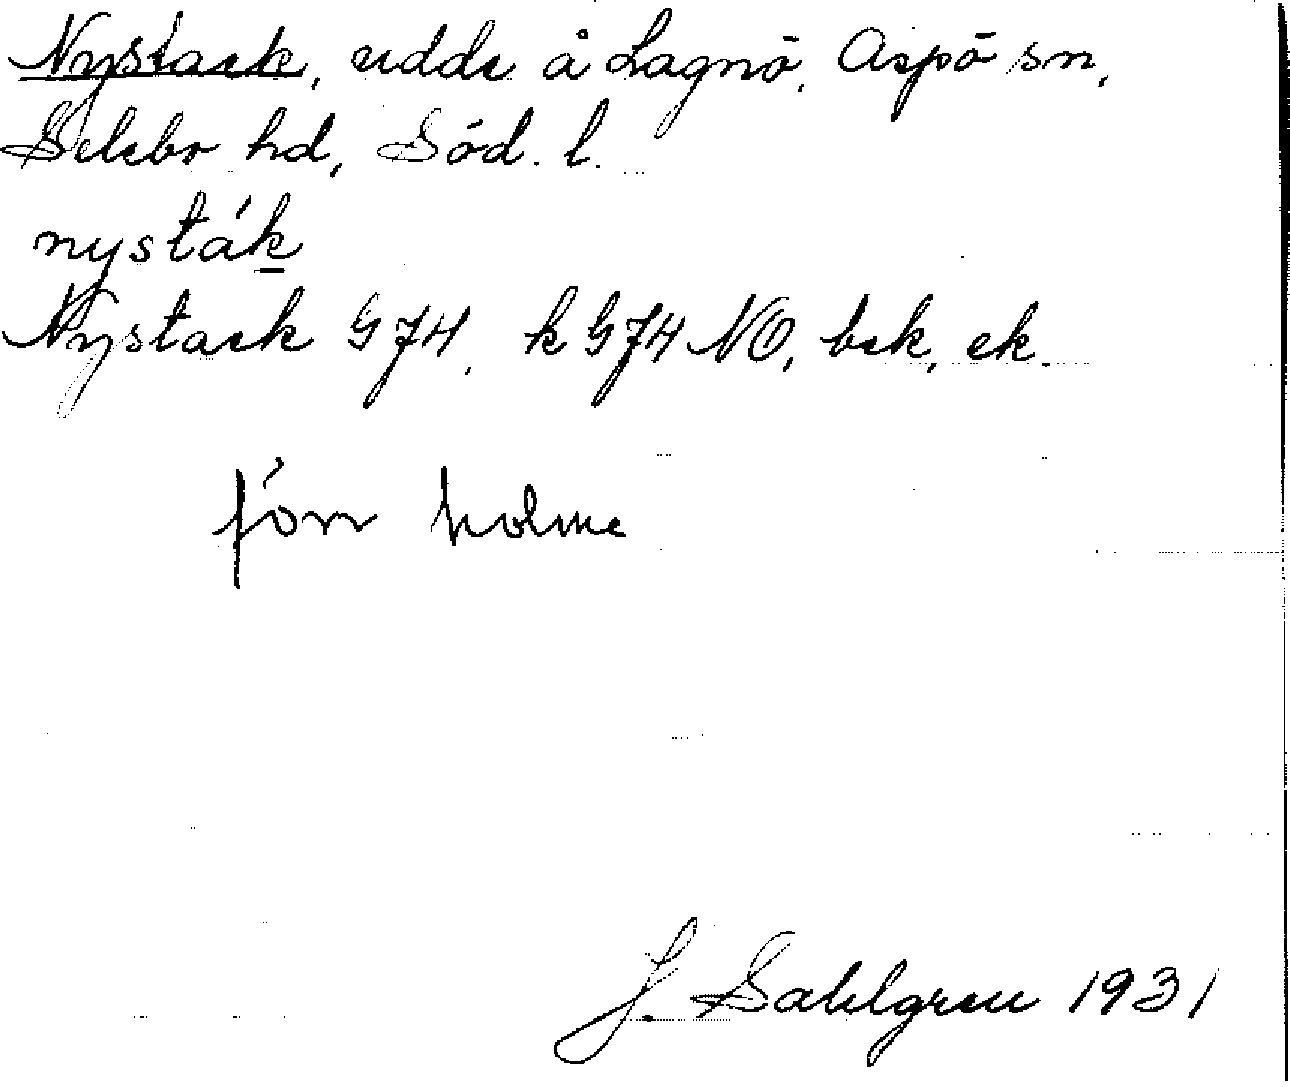 Nystack, udde å Lagnö, Aspö sn,
Selebo hd, Söd. l.
nysták
Nystack G 74, k G 74 NO, bek, ek.
förr holme
J. Sahlgren 1931